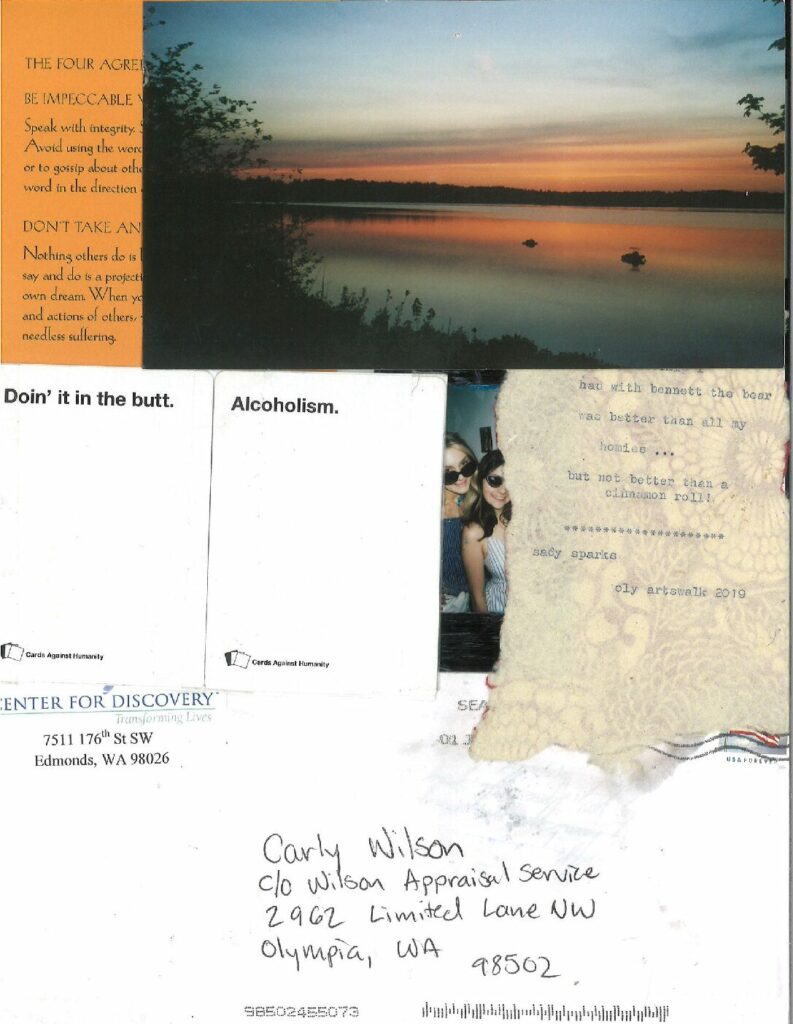 THE FOUR AGRE
BE IMPECCABLE
Speak with integrity.
Avoid using the wor
or to gossip about othe
word in the direction
DON'T TAKE AN
Nothing others do is
say and do is a projecti
own dream. When yo
and actions of others,
needless suffering.
Doin' it in the butt.
Cards Against Humanity
Alcoholism.
Cards Against Humanity
had with bennett the bear
was better than all my
homies ...
but not better than a
cinnamon roll!
*********************
sady sparks
oly artswalk 2019
CENTER FOR DISCOVERY
Transforming Lives
7511 176th St SW
Edmonds, WA 98026
SEA
01 J
USA FOREVER
Carly Wilson
c/o Wilson Appraisal Service
2962 Limited Lane NW
Olympia, WA
98502
98502455073